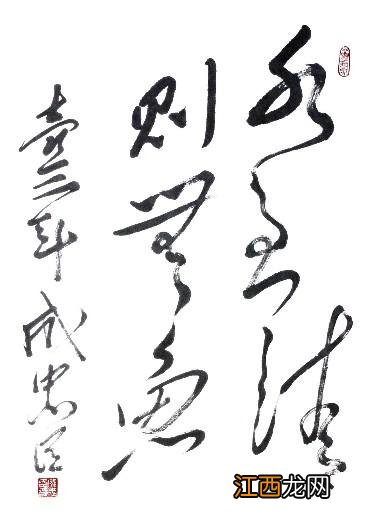 水至清
则無魚
壹三年 成忠臣
江西龙网